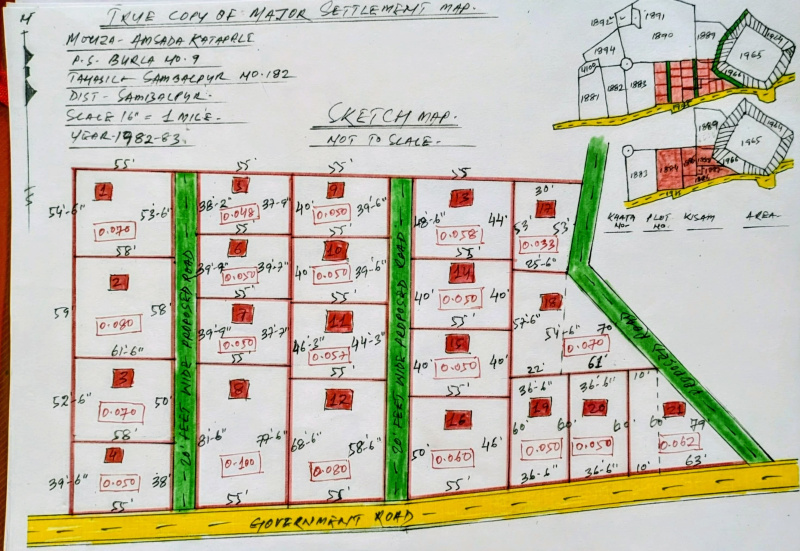 TRUE COPY OF MAJOR SETTLEMENT MAP.
MOUZA- AMSADA KATAPALE
P.S. BURLA NO. 9
TAHASILA- SAMBALPUR NO. 182
DIST- SAMBALPUR.
SCALE 16" = 1 MILE.
YEAR-1982-83.
SKETCH MAP.
NOT TO SCALE.
N
S
1892
1891
1890
1889
1894
1881
1882
1883
1965
1964
1966
1889
1965
1964
1966
1883
1884
KHATA NO.
PLOT NO.
KISAM
AREA
55'
1
54'-6"
53'-6"
0.070
58'
2
59'
58'
0.080
61'-6"
3
52'-6"
50'
0.070
58'
4
39'-6"
38'
0.050
55'
20 FEET WIDE PROPOSED ROAD
55'
5
38'-2"
37'-9"
0.048
55'
6
39'-9"
39'-7"
0.050
55'
7
39'-9"
37'-7"
0.050
55'
8
81'-6"
77'-6"
0.100
55'
55'
9
40'
39'-6"
0.050
55'
10
40'
39'-6"
0.050
55'
11
46'-3"
44'-3"
0.057
55'
12
68'-6"
58'-6"
0.080
55'
20 FEET WIDE PROPOSED ROAD
55'
13
48'-6"
44'
0.058
55'
14
40'
40'
0.050
55'
15
40'
40'
0.050
55'
16
50'
46'
0.060
55'
30'
17
53'
53'
0.033
25'-6"
18
57'-6"
54'-6"
70'
0.070
22'
61'
36'-6"
19
60'
60'
0.050
36'-6"
36'-6"
20
60'
0.050
36'-6"
10'
10'
21
60'
79'
0.062
63'
PROPOSED ROAD
GOVERNMENT ROAD